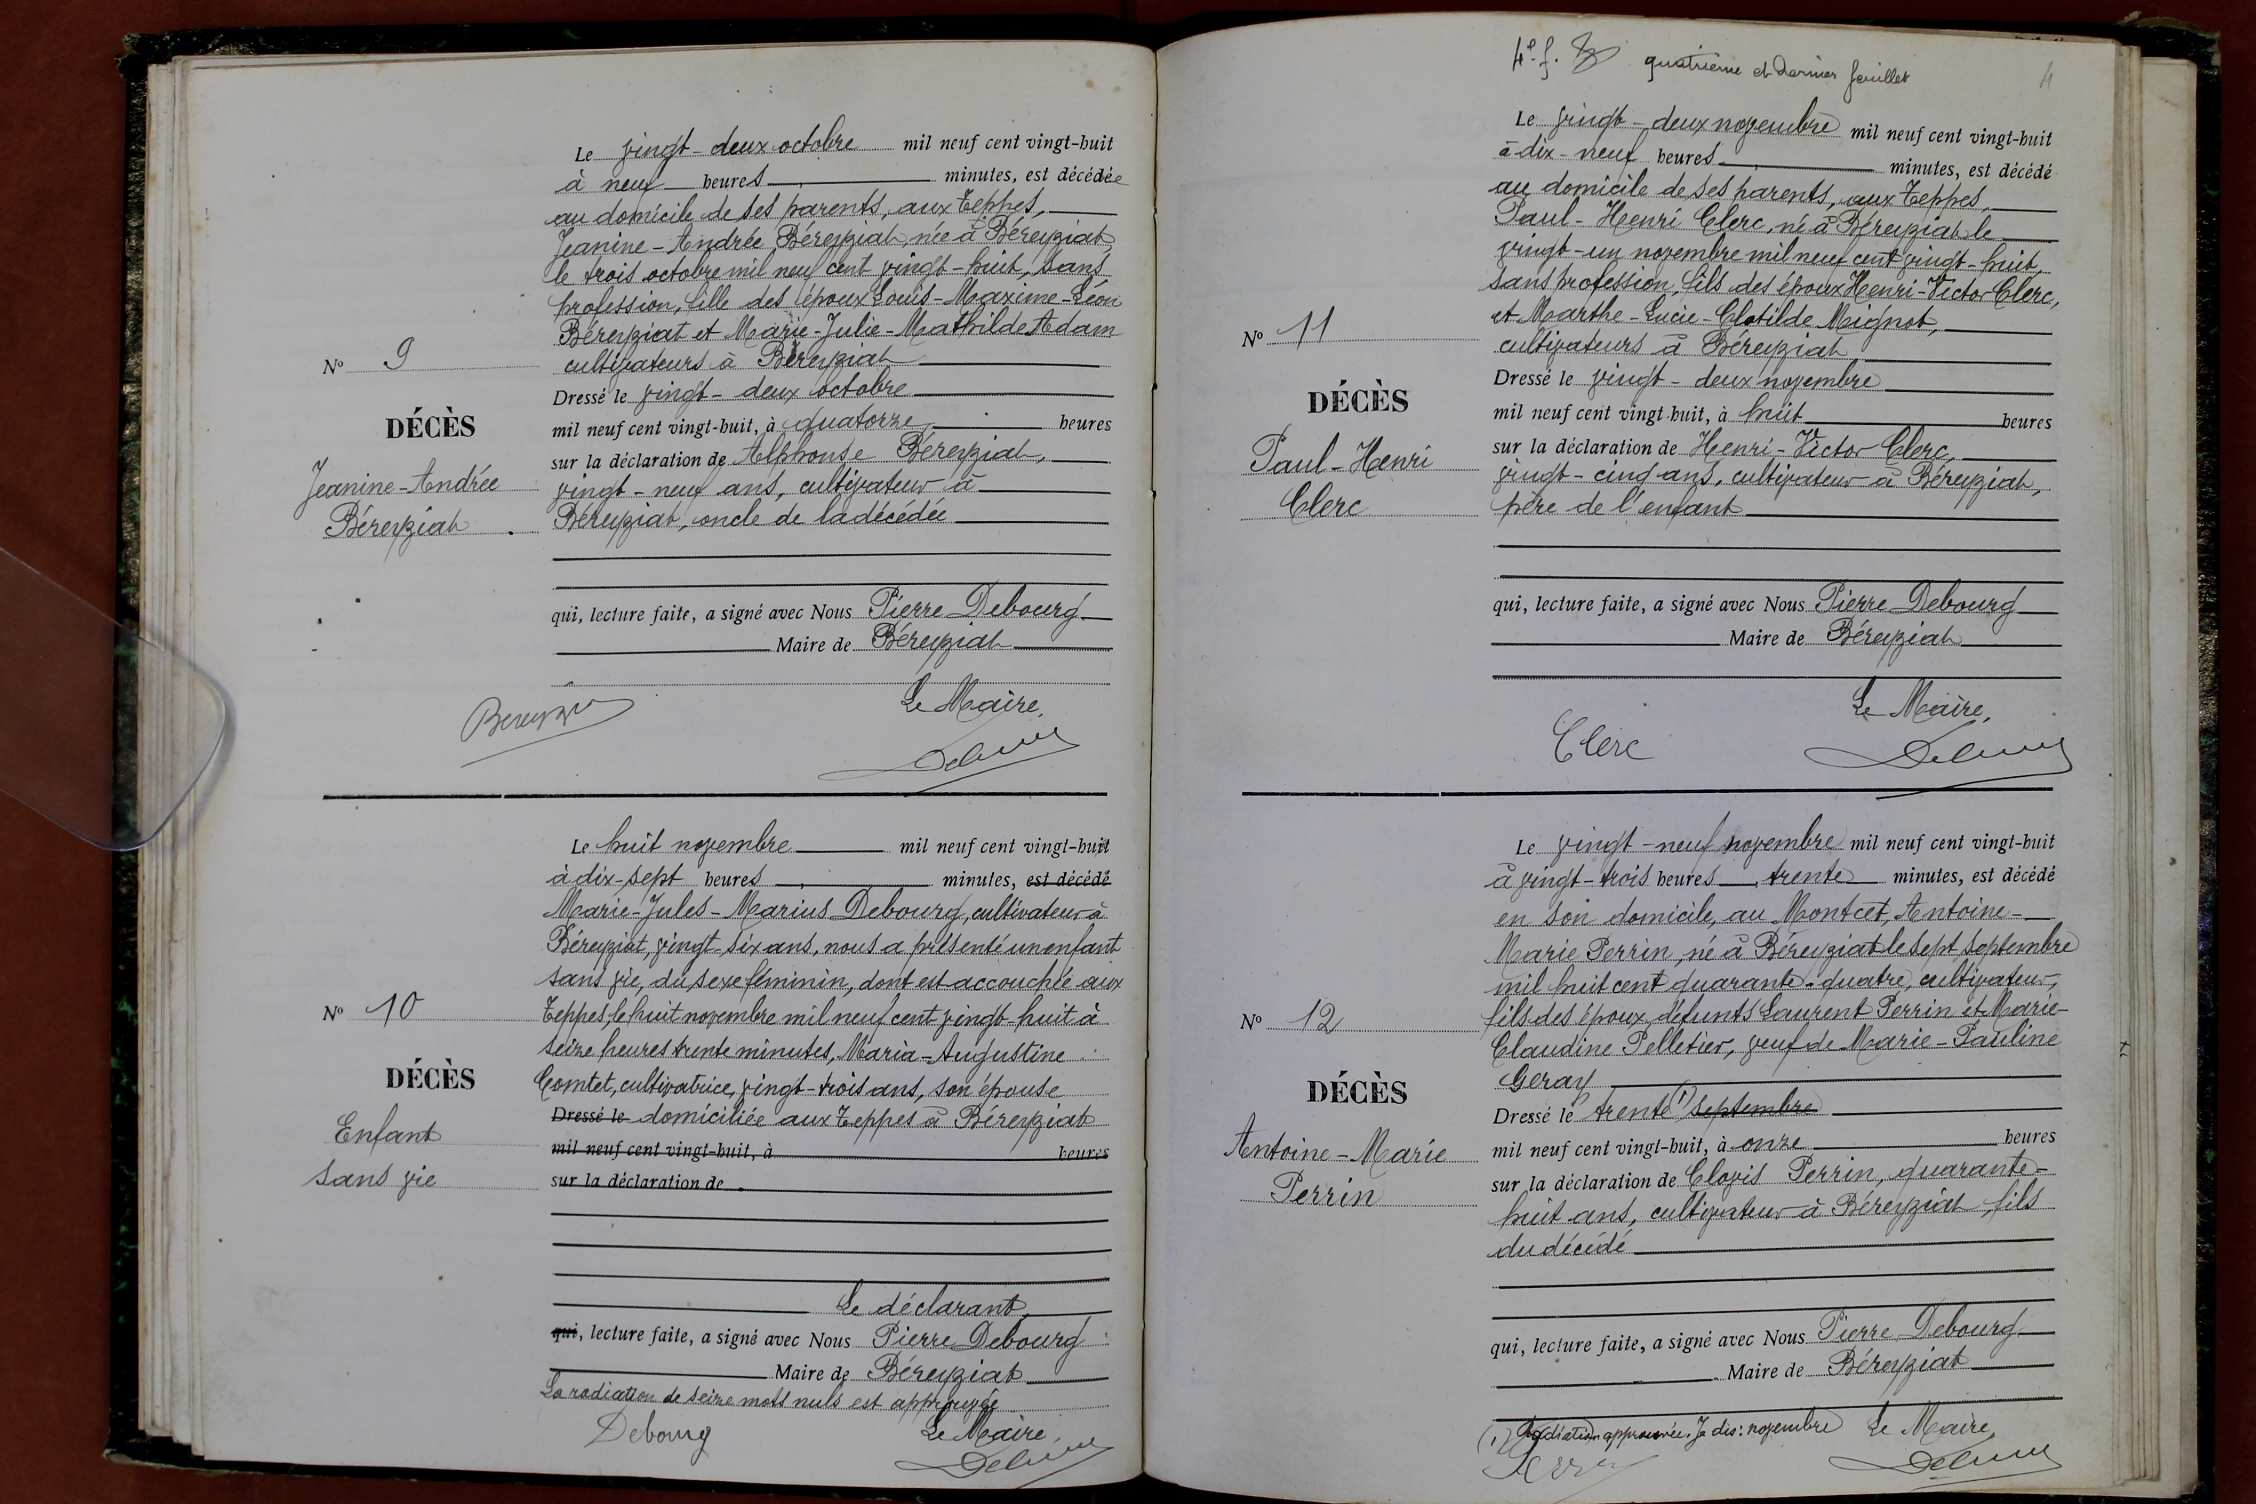 Le vingt-deux octobre mil neuf cent vingt-huit
à neuf heures minutes, est décédée
au domicile de ses parents, aux Teppes,
Jeanine-Andrée Béreyziat, née à Béreyziat
le trois octobre mil neuf cent vingt-huit, sans
profession, fille des époux Louis-Maxime-Léon
Béreyziat et Marie-Julie-Mathilde Adam
cultivateurs à Béreyziat
Nº 9
Dressé le vingt-deux octobre
DÉCÈS
mil neuf cent vingt-huit, à quatorze heures
sur la déclaration de Alphonse Béreyziat,
Jeanine-Andrée
vingt-neuf ans, cultivateur à
Béreyziat
Béreyziat, oncle de la décédée
qui, lecture faite, a signé avec Nous Pierre Debourg
Maire de Béreyziat
Le Maire,
Bereyziat
Le huit novembre mil neuf cent vingt-huit
à dix-sept heures minutes, est décédé
Marie-Jules-Marius Debourg, cultivateur à
Béreyziat, vingt-six ans, nous a présenté un enfant
sans vie, du sexe féminin, dont est accouchée aux
Nº 10
Teppes, le huit novembre mil neuf cent vingt-huit à
seize heures trente minutes, Maria-Augustine
DÉCÈS
Comtet, cultivatrice, vingt-trois ans, son épouse
Enfant
Dressé le domiciliée aux Teppes à Béreyziat
mil neuf cent vingt-huit, à heures
sans vie
sur la déclaration de
Le déclarant,
qui, lecture faite, a signé avec Nous Pierre Debourg
Maire de Béreyziat
La radiation de seize mots nuls est approuvée
Debourg
Le Maire,
4e. f. quatrième et dernier feuillet
4
Le vingt-deux novembre mil neuf cent vingt-huit
à dix-neuf heures minutes, est décédé
au domicile de ses parents, aux Teppes,
Paul-Henri Clerc, né à Béreyziat le
vingt-un novembre mil neuf cent vingt-huit,
sans profession, fils des époux Henri-Victor Clerc,
et Marthe-Lucie-Clotilde Mignot,
Nº 11
cultivateurs à Béreyziat
Dressé le vingt-deux novembre
DÉCÈS
mil neuf cent vingt-huit, à huit heures
sur la déclaration de Henri-Victor Clerc,
Paul-Henri
vingt-cinq ans, cultivateur à Béreyziat,
Clerc
père de l'enfant
qui, lecture faite, a signé avec Nous Pierre Debourg
Maire de Béreyziat
Le Maire,
Clerc
Le vingt-neuf novembre mil neuf cent vingt-huit
à vingt-trois heures trente minutes, est décédé
en son domicile, au Montcet, Antoine-
Marie Perrin, né à Béreyziat le sept septembre
mil huit cent quarante-quatre, cultivateur,
Nº 12
fils des époux défunts Laurent Perrin et Marie-
Claudine Pelletier, veuf de Marie-Pauline
DÉCÈS
Geray
Dressé le trente (1) septembre
Antoine-Marie
mil neuf cent vingt-huit, à onze heures
Perrin
sur la déclaration de Clovis Perrin, quarante-
huit ans, cultivateur à Béreyziat, fils
du décédé
qui, lecture faite, a signé avec Nous Pierre Debourg
Maire de Béreyziat
(1) Radiation approuvée. Je dis: novembre
Le Maire,